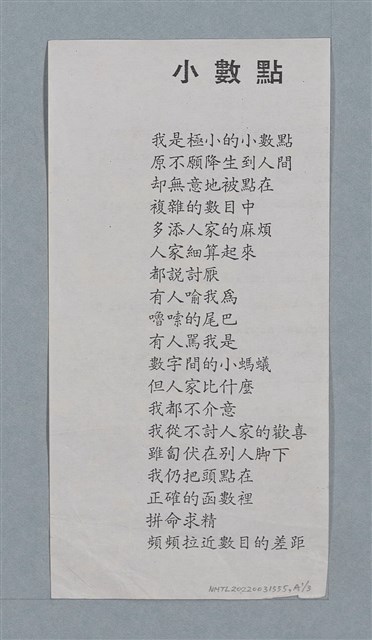 小數點
我是極小的小數點
原不願降生到人間
却無意地被點在
複雜的數目中
多添人家的麻煩
人家細算起來
都說討厭
有人喻我爲
嚕嗦的尾巴
有人罵我是
數字間的小螞蟻
但人家比什麼
我都不介意
我從不討人家的歡喜
雖匐伏在別人脚下
我仍把頭點在
正確的函數裡
拼命求精
頻頻拉近數目的差距
NMTL20220031555, A1/3